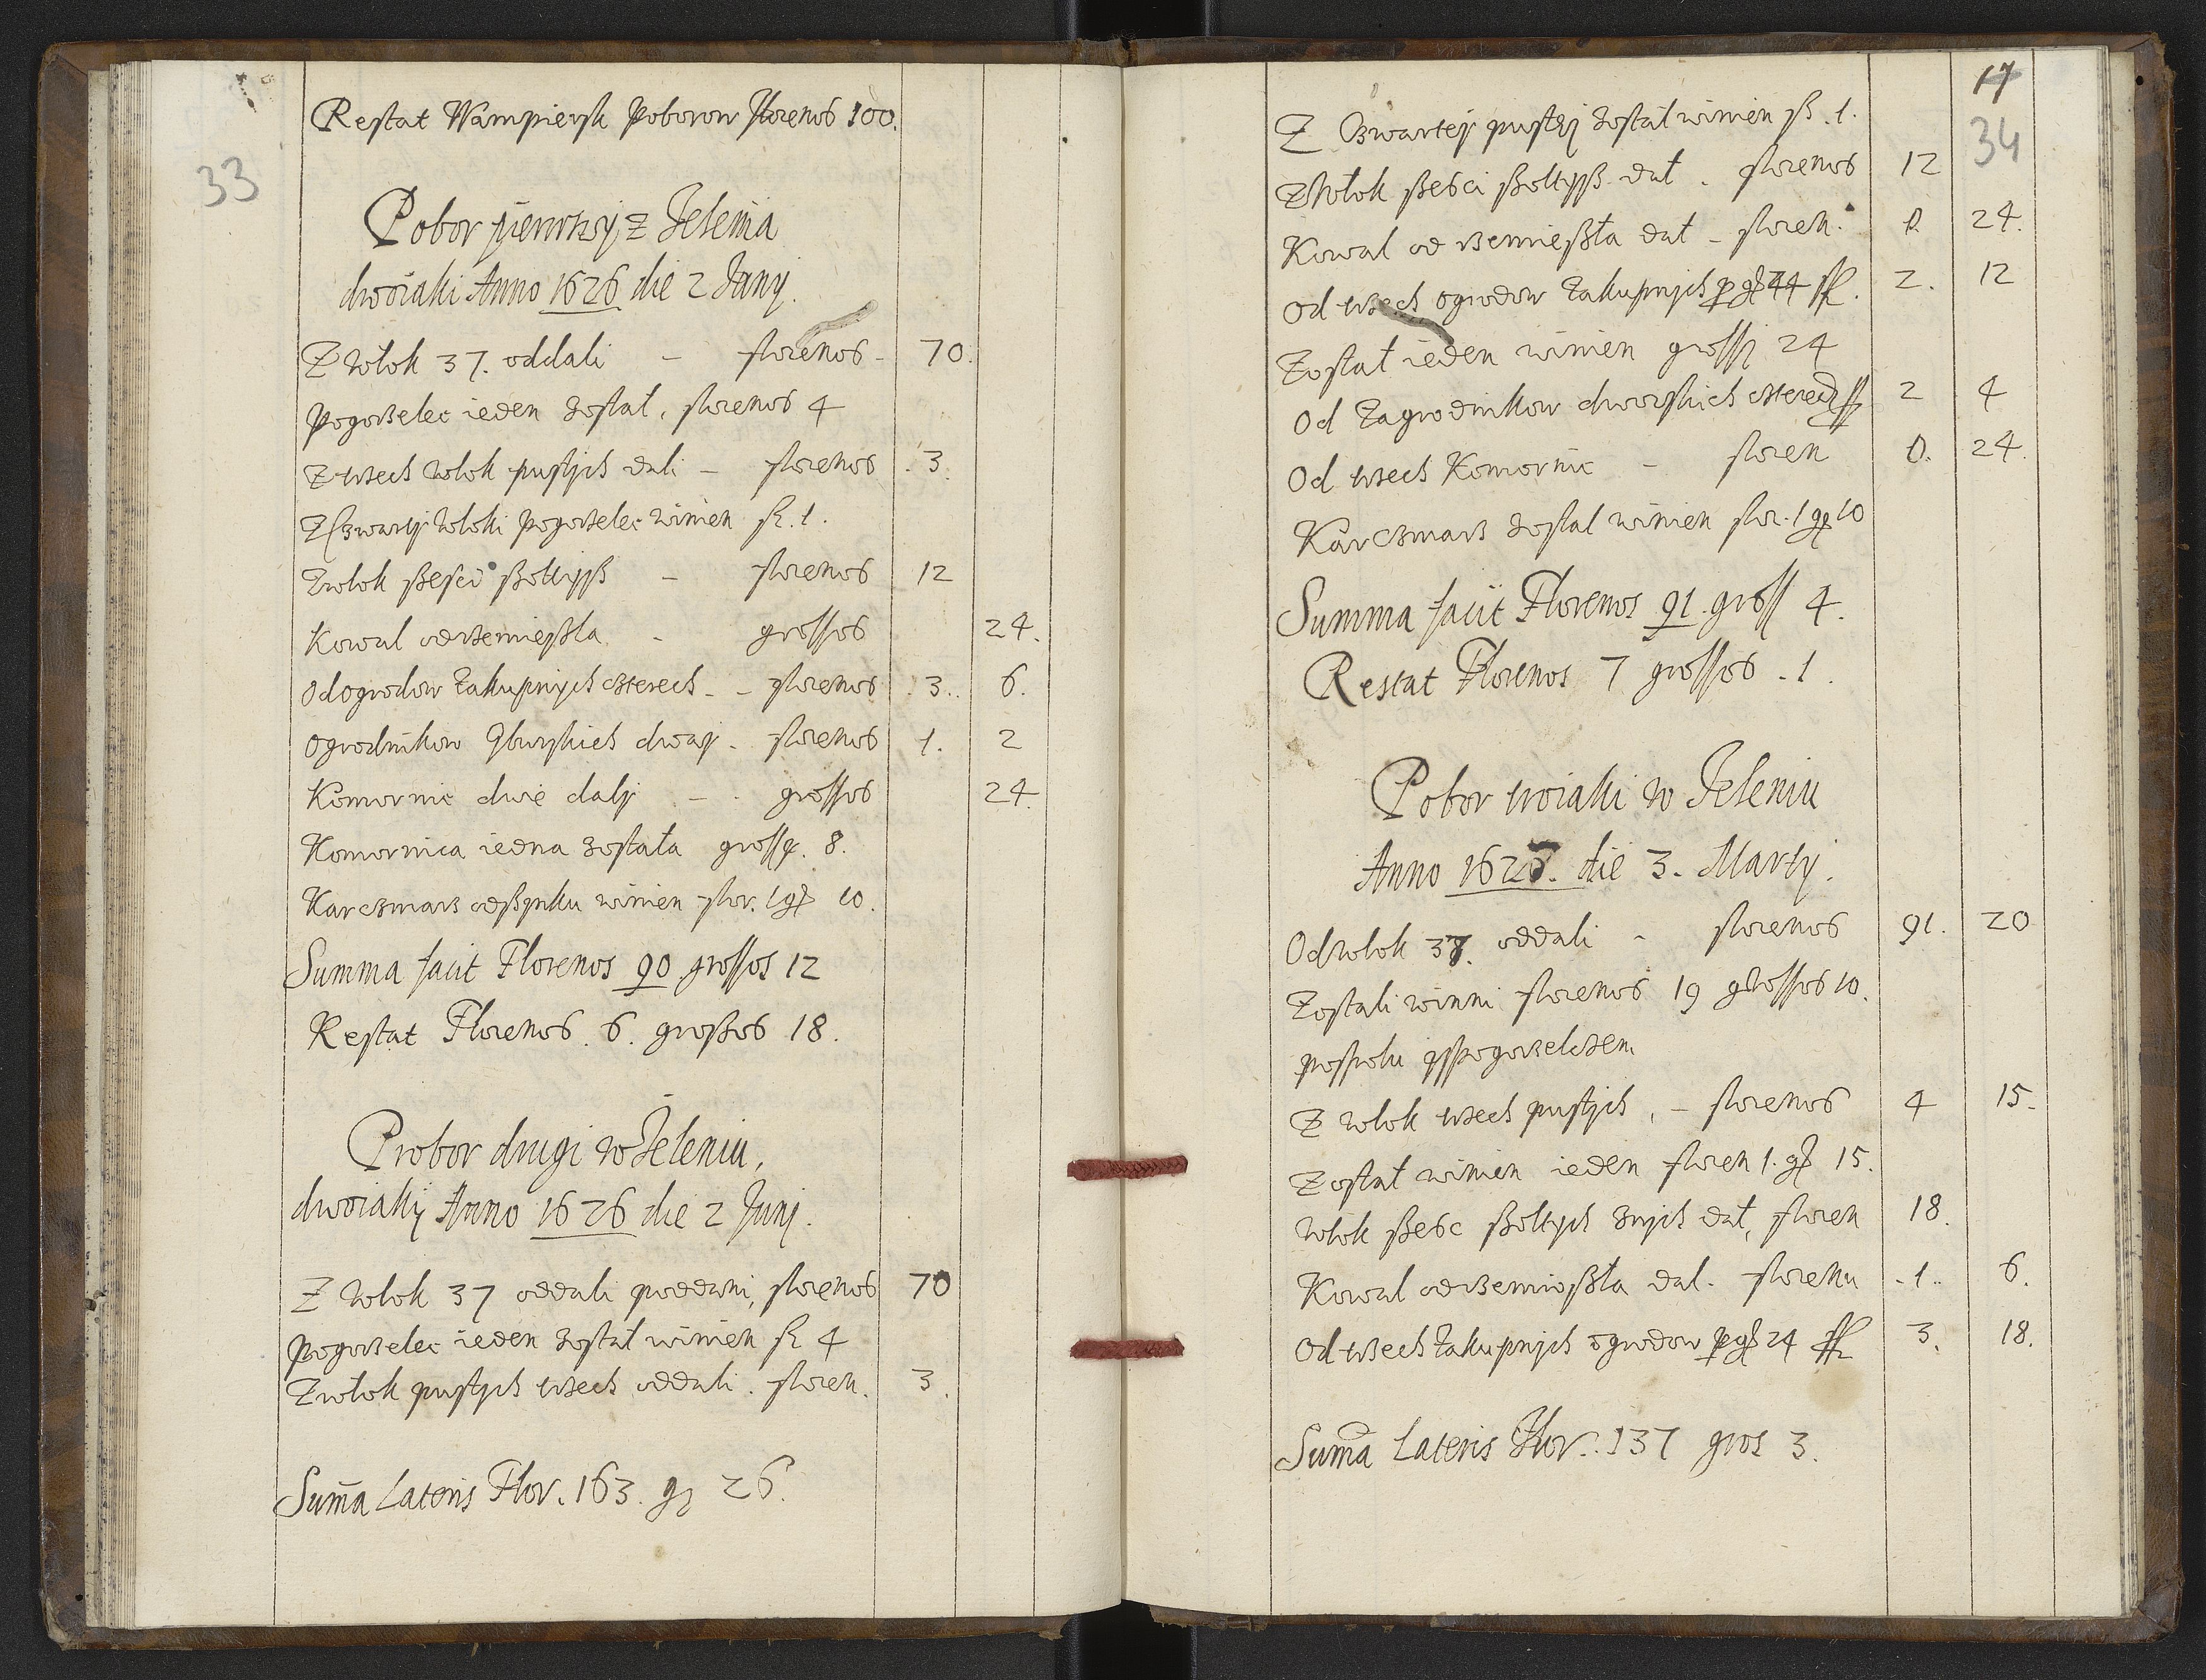 33
Restat Wampiersk Poborow Florenos 100.
Pobor pierwszij z Jelenia
dwoiaki Anno 1626 die 2 Janij.
Z wlok 37. oddali – florenos – 70.
Pogorzelec ieden zostal, florenos 4
Z trzech wlok pustijch dali – florenos 3.
Z Czwartij wloki pogorzelec winien fl. 1.
Z wlok ßesci ßoltijß – florenos 12
Kowal od rzemięßla – grossos 24.
Od ogrodow zakupnijch czterech – florenos 3. 6.
Ogrodnikow Gburskich dwaj – florenos 1. 2
Komornic dwie dalij – grossos 24.
Komornica iedna zostala gross. 8.
Karczmarz od ßijnku winien flor. 1 gr 10.
Summa facit Florenos 90 grossos 12
Restat Florenos 6. großos 18.
Probor drugi w Jeleniu,
dwoiakij Anno 1626 die 2 Junj.
Z wlok 37 oddali poddani, florenos 70
Pogorzelec ieden zostal winien fl 4
Z wlok pustijch trzech oddali. floren. 3.
Sum̃a Lateris Flor. 163. gr 26.
17
34
Z Czwartej pustej zostal winien fl. 1.
Z Wlok ßesci ßoltijß dał. florenos 12
Kowal od rzemięßła dał – floren. 0. 24.
Od trzech ogrodow zakupnijch p gr 24 fl. 2. 12
Został ieden winien grossj 24
Od zagrodnikow dworskich czterech fl 2 4
Od trzech Komornic – floren 0. 24.
Karczmarz zostal winien flor. 1 gr 10
Summa facit Florenos 91. gross 4.
Restat Florenos 7 grossos 1.
Pobor troiaki w Jeleniu
Anno 1627. die 3. Martij.
Od wlok 37. oddali – florenos 91. 20
Zostali winni florenos 19 grossos 10.
pospolu s pogorzelczem
Z wlok trzech pustijch, – florenos 4 15.
Został winien ieden floren 1. gr 15.
Wlok ßesc ßoltijch znijch dał, floren 18.
Kowal od rzemioßła dal. florenu 1. 6.
Od trzech zakupnijch ogrodow p gr 24 fl 3. 18.
Sum̃a Lateris Flor. 137 gros 3.